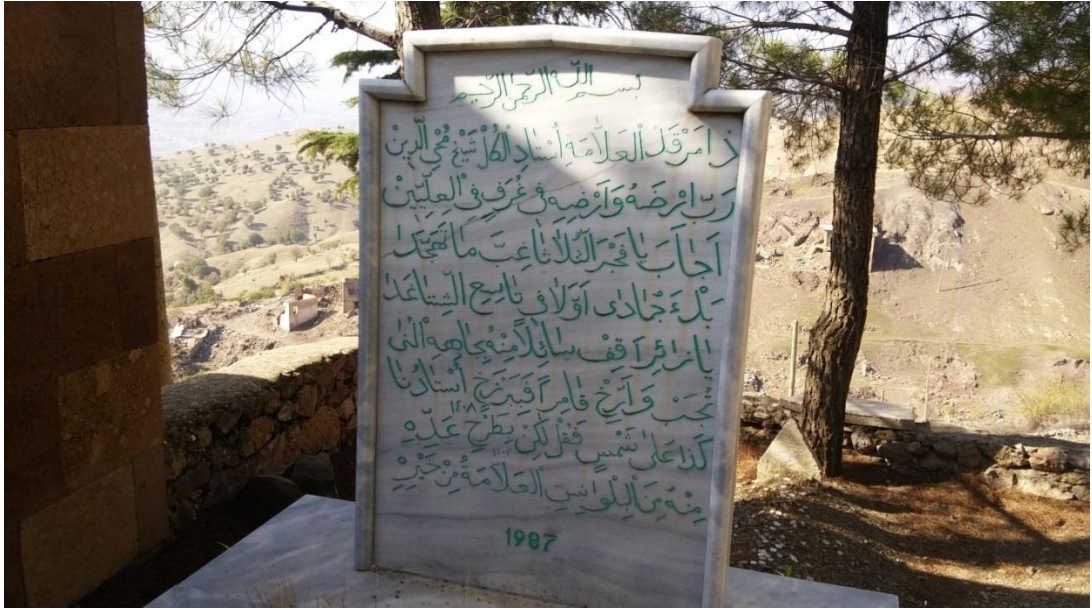 بسم اللّه الرّحمن الرّحيم
ذا مرقد العلّامة أستاذ الكلّ شيخ محي الدّين
ربّ ارضه وأرضه في غرف في العلّيّين
أجاب يا فجر الثّلاثا غبّ ما تهجّدا
بدء جمادى أوّلا في تاسع الشّتا غدا
يا زائرا قف سائلا منه بجاهه المنى
تجب وأرّخ أستاذنا
١٤٠٨
كذا على شمس فقل لكن بطرح عدّه
منه من العلّامة من خيره
1987